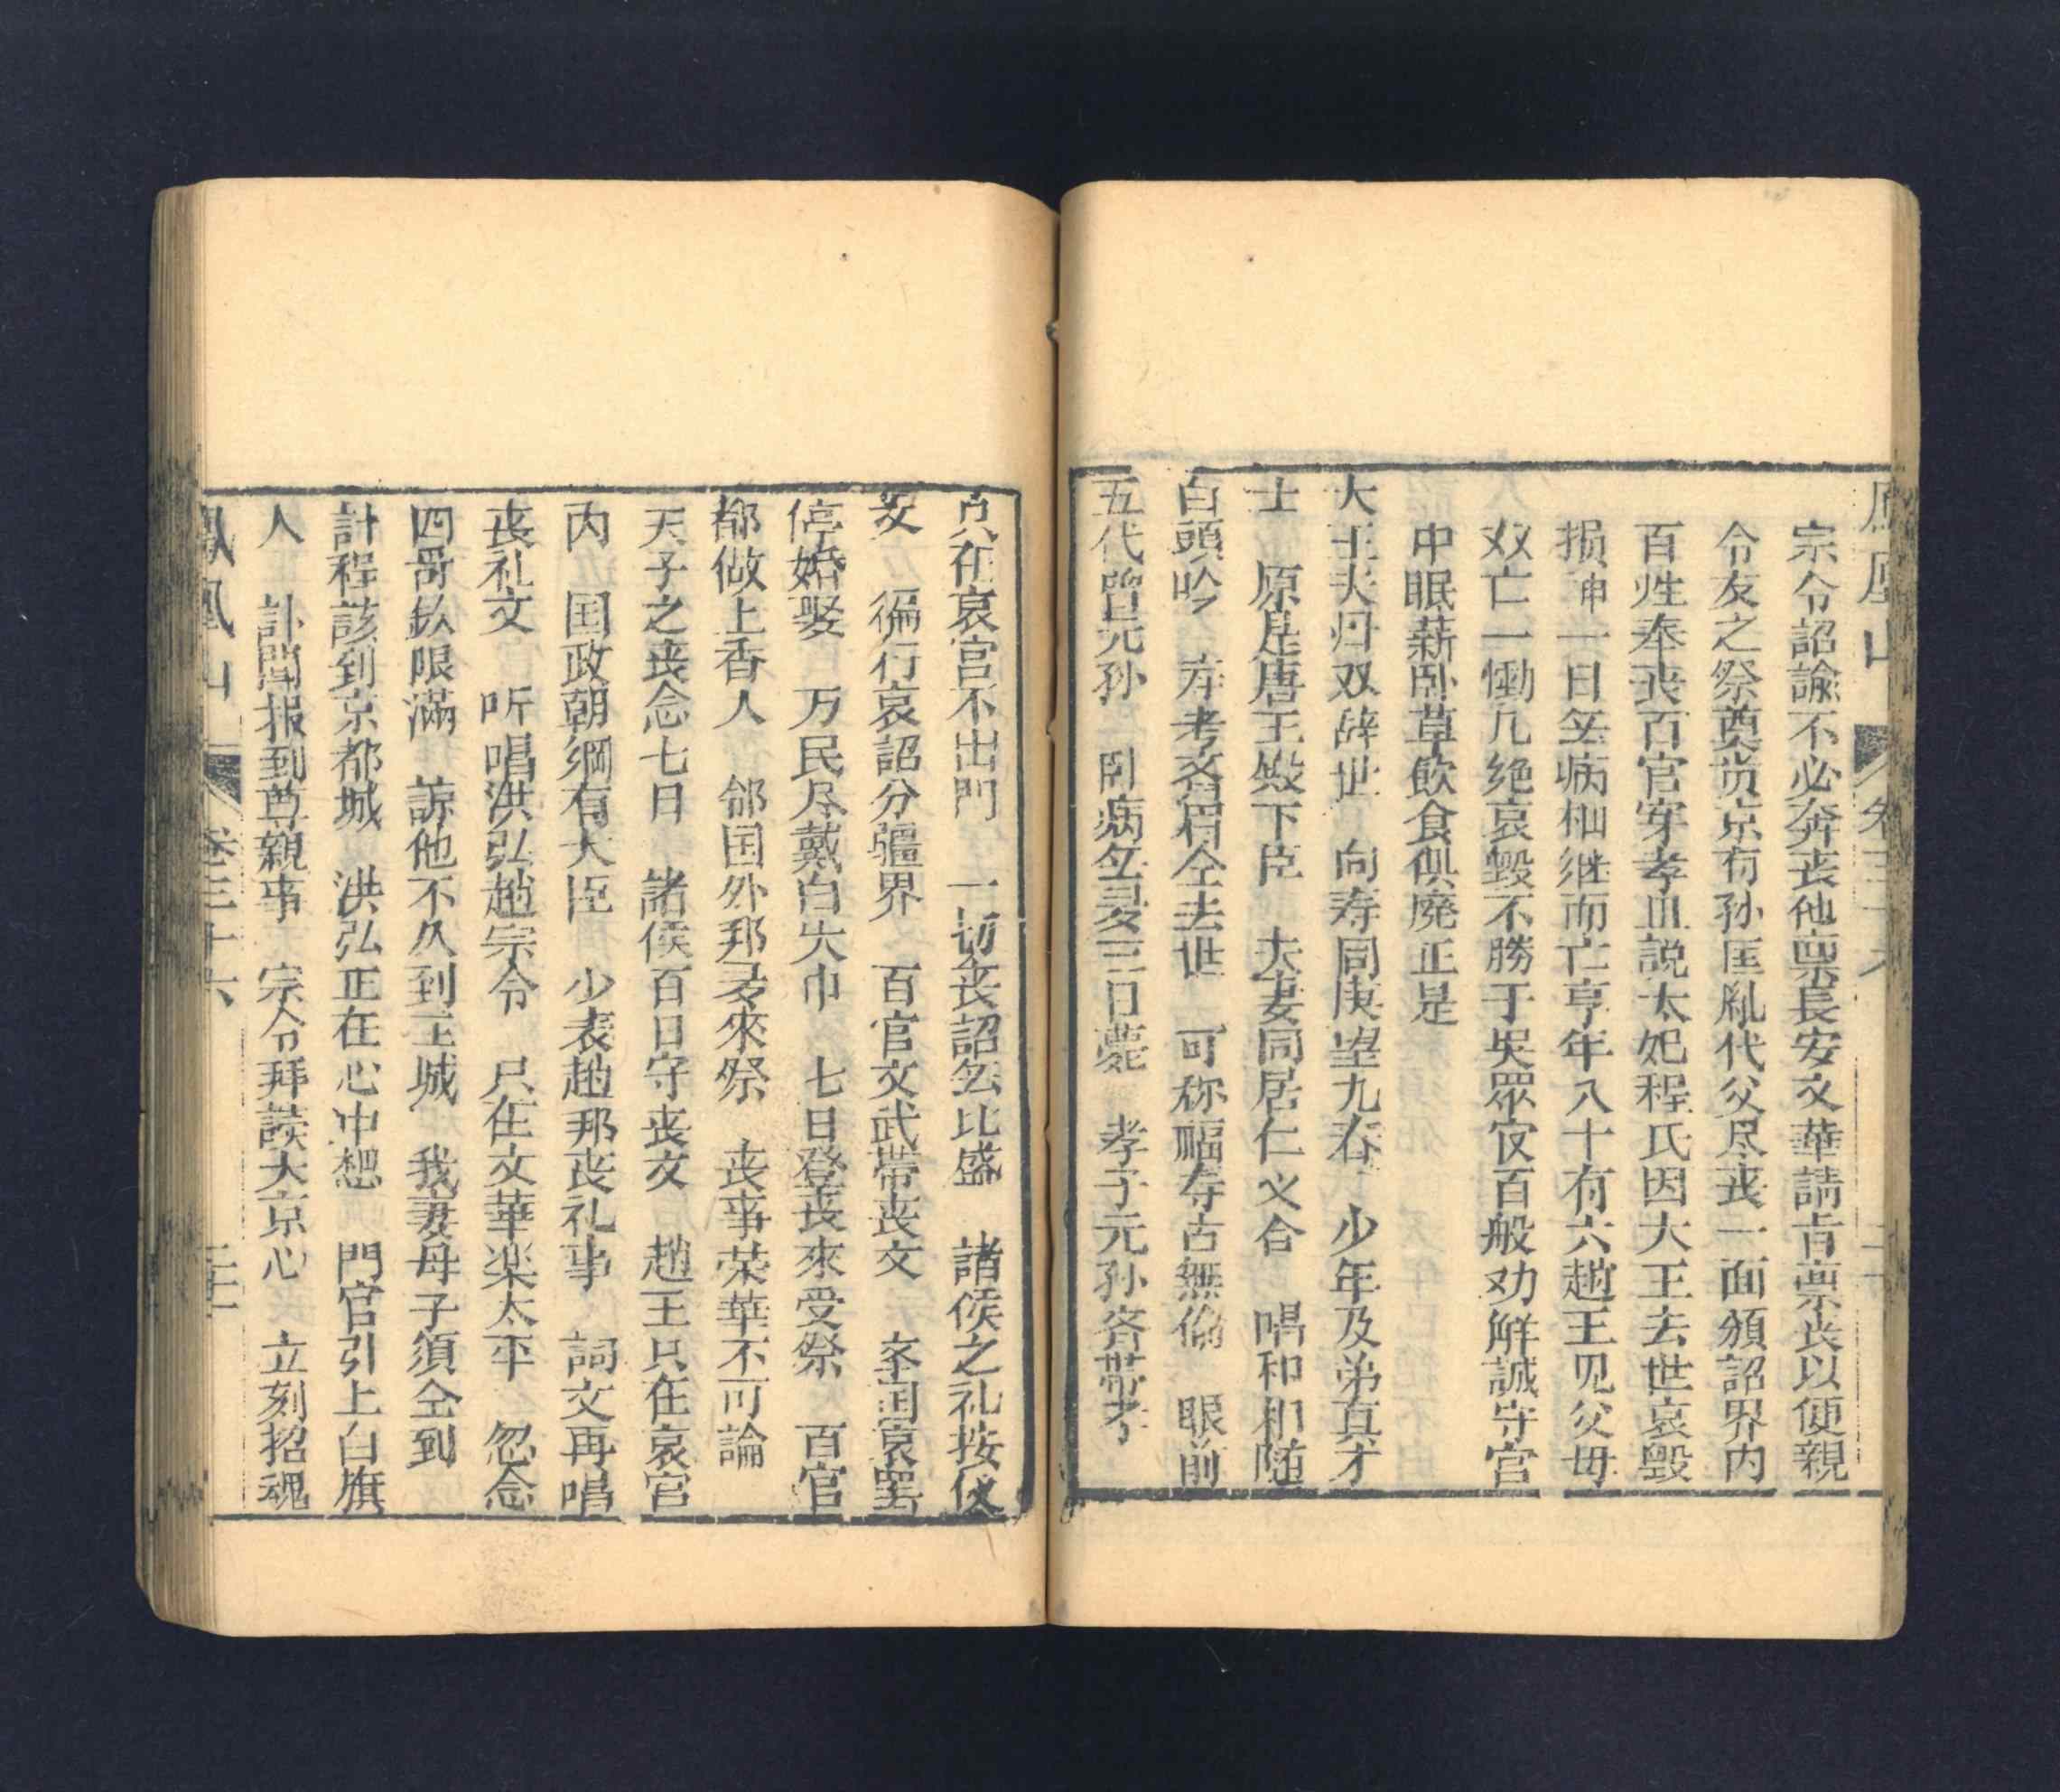 鳳凰山 卷三十六
宗令詔諭不必奔丧他禀長安文華請旨禀丧以便親
令友之祭奠贡京有孙匡胤代父尽丧一面頒詔界内
百姓奉丧百官穿孝血説太妃程氏因大王去世哀毁
损神一日无病相继而亡亨年八十有六趙王见父母
双亡一慟几绝哀毀不勝于是眾官百般劝解誠守宫
中眠薪卧草飲食俱廃正是
大王夫妇双辞世 向寿同庚望九春 少年及弟真才
士 原是唐王殿下臣 夫妻同居仁义合 唱和相随
白頭吟 寿考齐眉仝去世 可称福寿古無倫 眼前
五代曾元孙 卧病无夣三日薨 孝子元孙齐帶孝
只在哀宫不出門 一切丧詔无比盛 諸侯之礼按仪
文 徧行哀詔分疆界 百官文武帶丧文 峯国哀罢
停婚娶 万民尽戴白头巾 七日登丧來受祭 百官
都做上香人 邻国外邦多來祭 丧事荣華不可論
天子之丧念七日 諸侯百日守丧文 趙王只在哀宫
内 国政朝綱有大臣 少表趙邦丧礼事 詞文再唱
丧礼文 听唱洪弘趙宗令 只在文華楽太平 忽念
四哥欽限滿 諒他不久到王城 我妻母子須仝到
計程該到京都城 洪弘正在心中想 門官引上白旗
人 訃聞报到尊親事 宗令拜読大京心 立刻招魂
鳳凰山 卷三十六 二十一